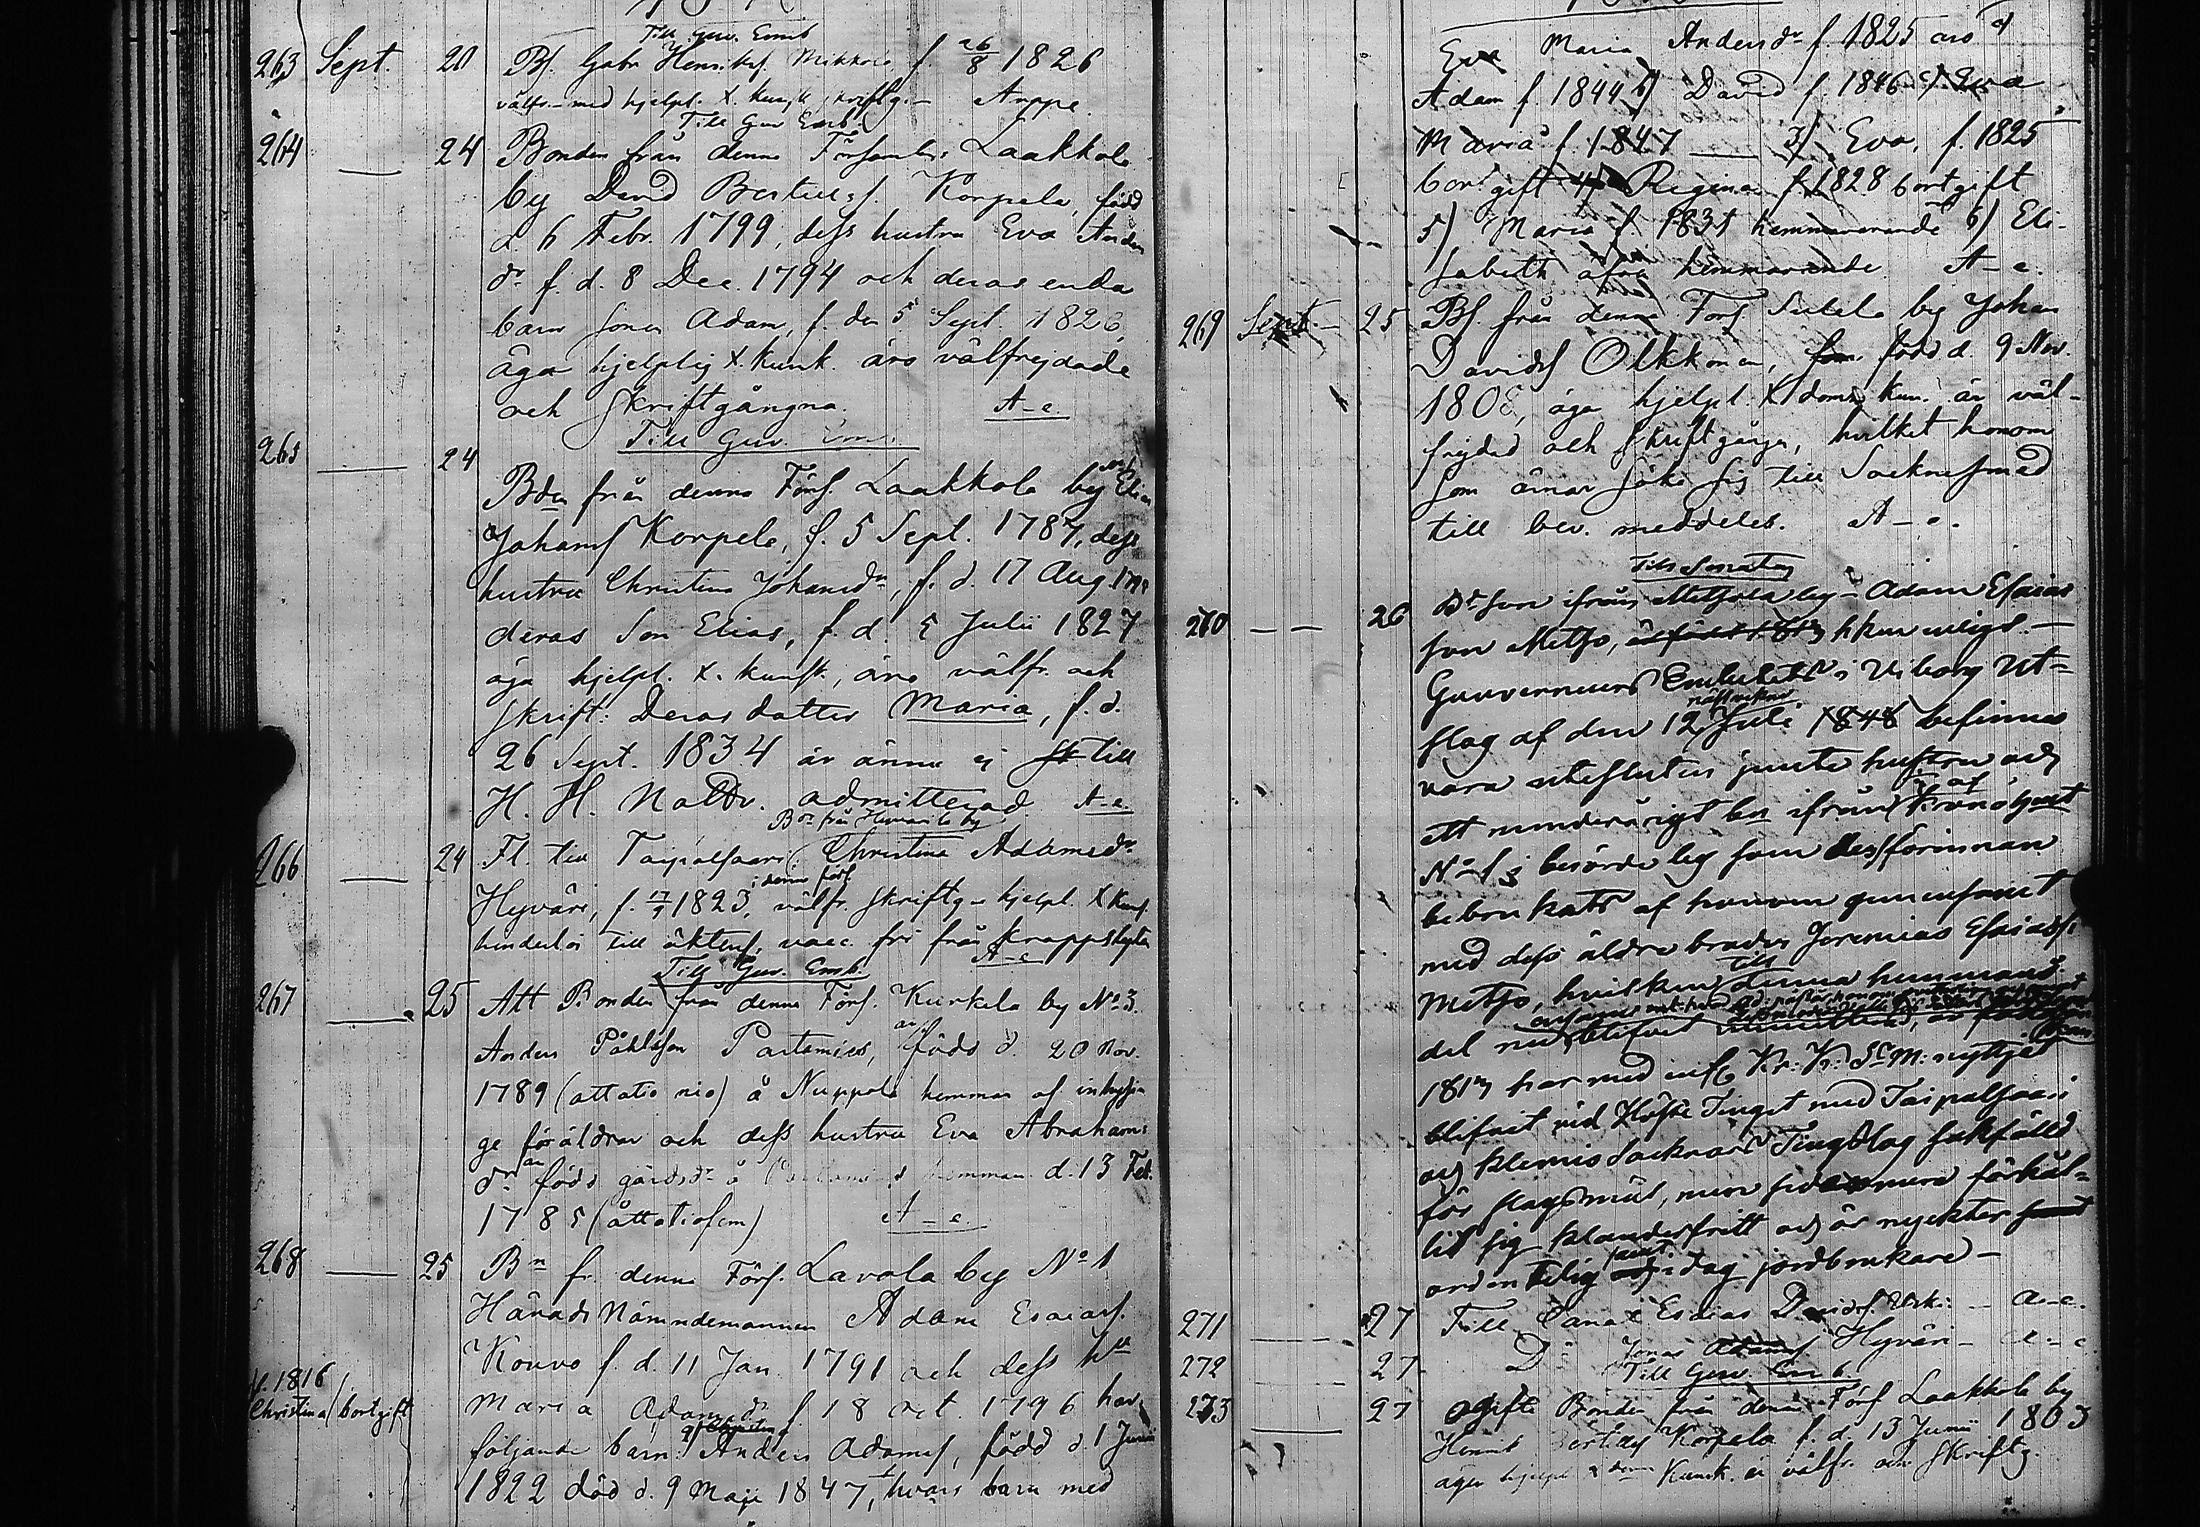 Till Guv. Emb
263 Sept. 20 Bf. Gabr Henriksf Mikkola f 26/8 1826
välfr. med hjelpl. X. kunsk skriftg. Arppe.
Till Guv Emb.
264 — 24 Bonden från denna Församl:s Laakkola
by David Bertilsf. Korpela, född
d. 6 Febr. 1799, dess hustru Eva Anders
dr f. d. 8 Dec. 1794 och deras enda
barn sonen Adam, f. den 5 Sept. 1826,
äga hjelplig X. kunk. äro välfrejdade
och skriftgångna. A-e.
Till Guv. Emb.
265 — 24
Bden från denna Förs. Laakkola by Elias
Johansf Korpela, f. 5 Sept. 1787, dess
hustru Christina Johansdr, f. d. 17 Aug
deras Son Elias, f. d. 5 Julii 1827
äga hjelpl. X. kunsk., äro välfr. och
skrift: Deras dotter Maria, f. d.
26 Sept. 1834 är ännu ej till
H. H. Nattv. admitterad. A-e.
266 — 24 Fl. till Taipalsaari. Christina Adamsdr
i denna förs.
Hyväri, f. 1823, välfr. skriftg. hjelpl. X kunsk.
hinderlös till äktensk, vacc. fri från
A-e
Till Guv. Emb.
267 — 25 Att Bonden från denna Förs. Kurkela by No 3.
Anders Påhlsson Partamies, är född d. 20 Nov.
1789 (åttatio nio) å Nuppola hemman af inhyssin
ge föräldrar och dess hustru Eva Abrahams
dr är född gårdsdr å hemman d. 13 Feb.
1785 (åttatiofem) A-e
268 — 25 Bn fr. denna Förs. Lavola by No 1
Härads Nämndemannen Adam Esaiasf.
Kouvo f. d. 11 Jan. 1791 och dess hu
f. 1816
Christina bortgift
Maria Adamsdr f. 18 oct. 1796 hav
följande barn: Anders Adamsf, född d. 1 Junii
1822 död d. 9 Maji 1847, hvars barn med
Eva Maria Andersdr f. 1825 äro a)
Adam f. 1844 b) David f. 1846 c) Eva
Maria f. 1847 — 3) Eva, f. 1825
bortgift 4) Regina f. 1828 bortgift
5) Maria f. 1831 hemmavarande 6) Eli-
sabeth hemmavarande A-e.
269 Sept — 25 Bf. från denna Förs Sutela by Johan
Davidsf Olkkonen, född d. 9 Nov.
1808, äga hjelpl. X doms kun. är väl-
frejdad och skriftgången, hvilket honom
som ämnar söka sig till Socknesmed
till bev. meddeles. A-e.
Till Senaten
270 — — 26 Bdeson ifrån Metsola by Adam Esaias
son Metso, hkn enligt —
Gouverneurs Embetets i Viborg Ut-
slag af den 12 Juli 1848 befinnes
vara utesluten jemte hustru och
ett minderårigt ifrån
No 13 besörde lig som dessförinnan
brukats af honom gemensamt
med dess äldre broder Jeremias Esaiass.
Metso, hvilken till denna hemmans
del nu blifvit
1817 har med
blifvit vid Höste Tinget med Taipalsaari
och Klemis Socknars Tingslag sakfälld
för slagsmål, men sedermera förhål-
lit sig klanderfritt och är nyckter samt
ordentelig jordbrukare —
271 — 27 Till Esaias Davidsf. a-e.
272 — 27 Do Jonas Adamsf Hyväri — a-e
Till Guv. Emb.
273 — 27 ogifte Bonden från denna Förs Laakkola by
Henrik Bertilsf Korpela f. d. 13 Junii 1803
äger hjelpl X doms kunsk. är välfr. och skriftg.